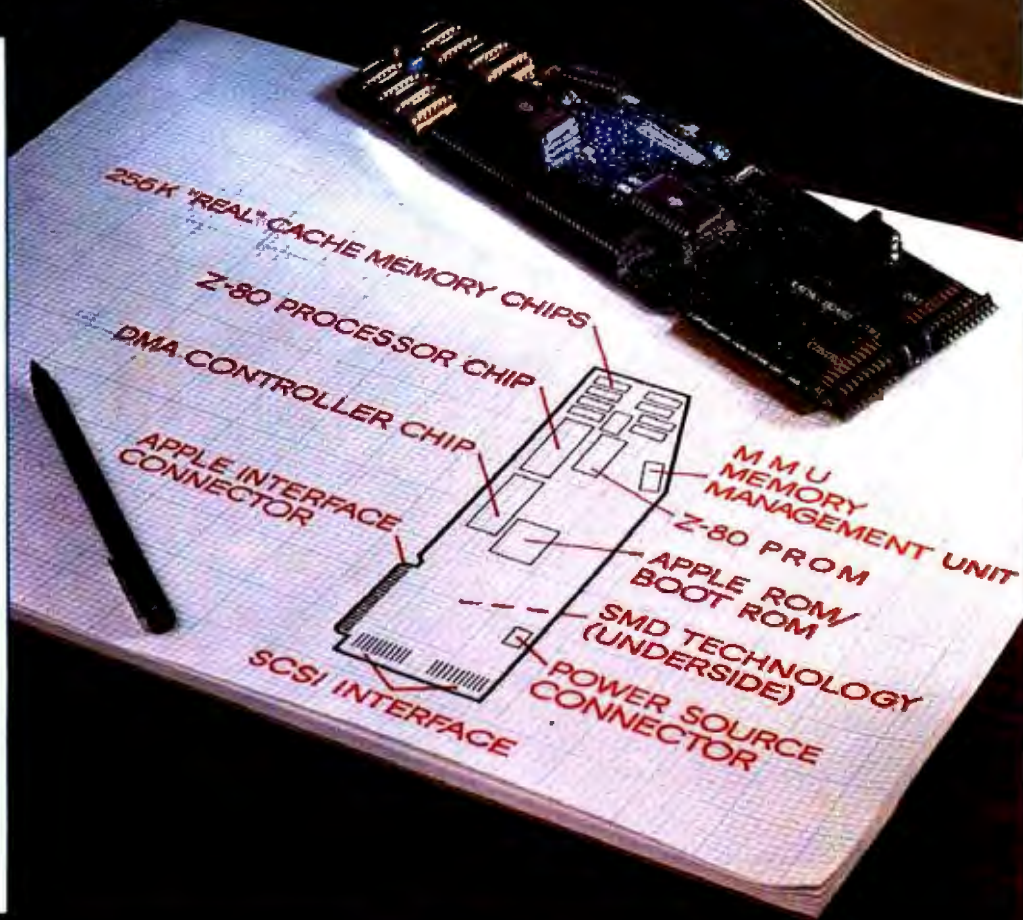 256K "REAL" CACHE MEMORY CHIPS
Z-80 PROCESSOR CHIP
DMA CONTROLLER CHIP
APPLE INTERFACE
CONNECTOR
SCSI INTERFACE
M M U
MEMORY
MANAGEMENT UNIT
Z-80 P R O M
APPLE ROM/
BOOT ROM
SMD TECHNOLOGY
(UNDERSIDE)
POWER SOURCE
CONNECTOR